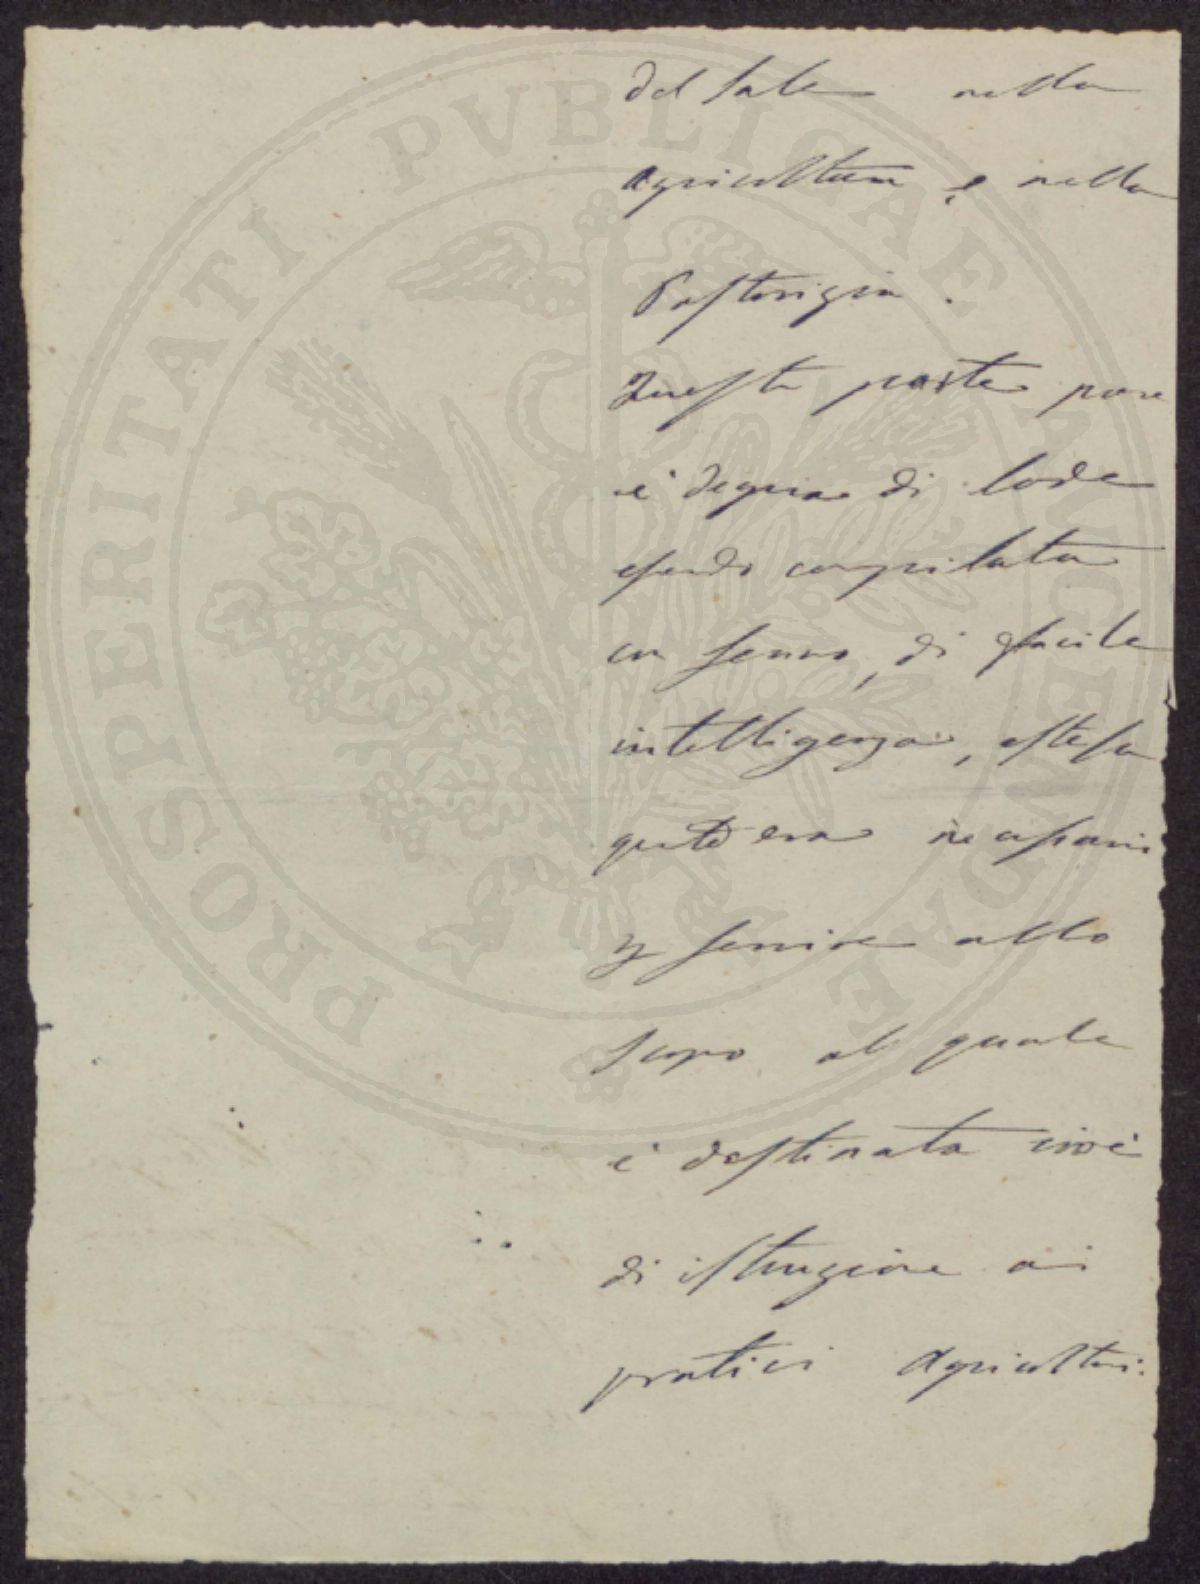 del sale nella
agricoltura e nella
Pastorizia.
Questa parte pure
è degna di lode
essendo compilata
con senno, di facile
intelligenza, estesa
quanto era necessario
per servire allo
scopo al quale
è destinata cioè
di istruzione ai
pratici Agricoltori.
PROSPERITATI PVBLICAE AVGENDAE